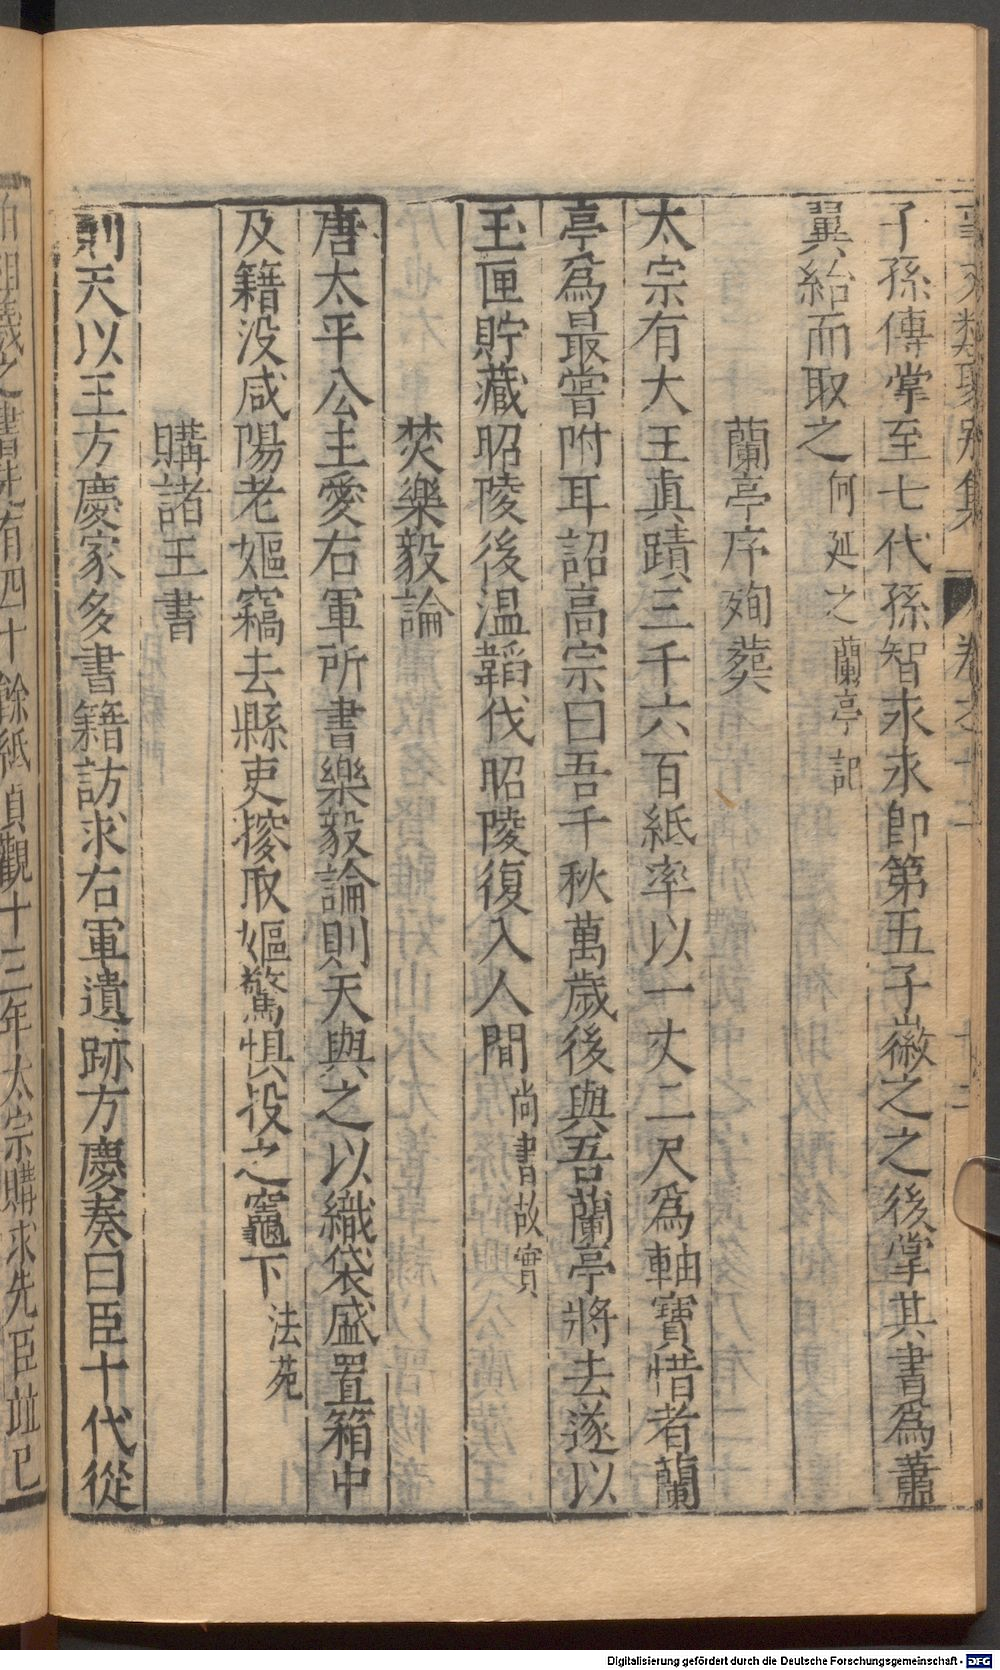 子孫傳掌至七代孫智永永卽第五子徽之之後掌其書爲蕭
翼紿而取之何延之蘭亭記
蘭亭序殉葬
太宗有大王眞蹟三千六百紙率以一丈二尺爲軸寶惜者蘭
亭爲最嘗附耳詔高宗曰吾千秋萬歲後與吾蘭亭將去遂以
玉匣貯藏昭陵後溫韜伐昭陵復入人間尚書故實
焚樂毅論
唐太平公主愛右軍所書樂毅論則天與之以織袋盛置箱中
及籍没咸陽老嫗竊去縣吏搜取嫗驚惧投之竈下法苑
購諸王書
則天以王方慶家多書籍訪求右軍遺跡方慶奏曰臣十代從
伯祖羲之書先有四十餘紙貞觀十三年太宗購求先臣並已
Digitalisierung gefördert durch die Deutsche Forschungsgemeinschaft - DFG